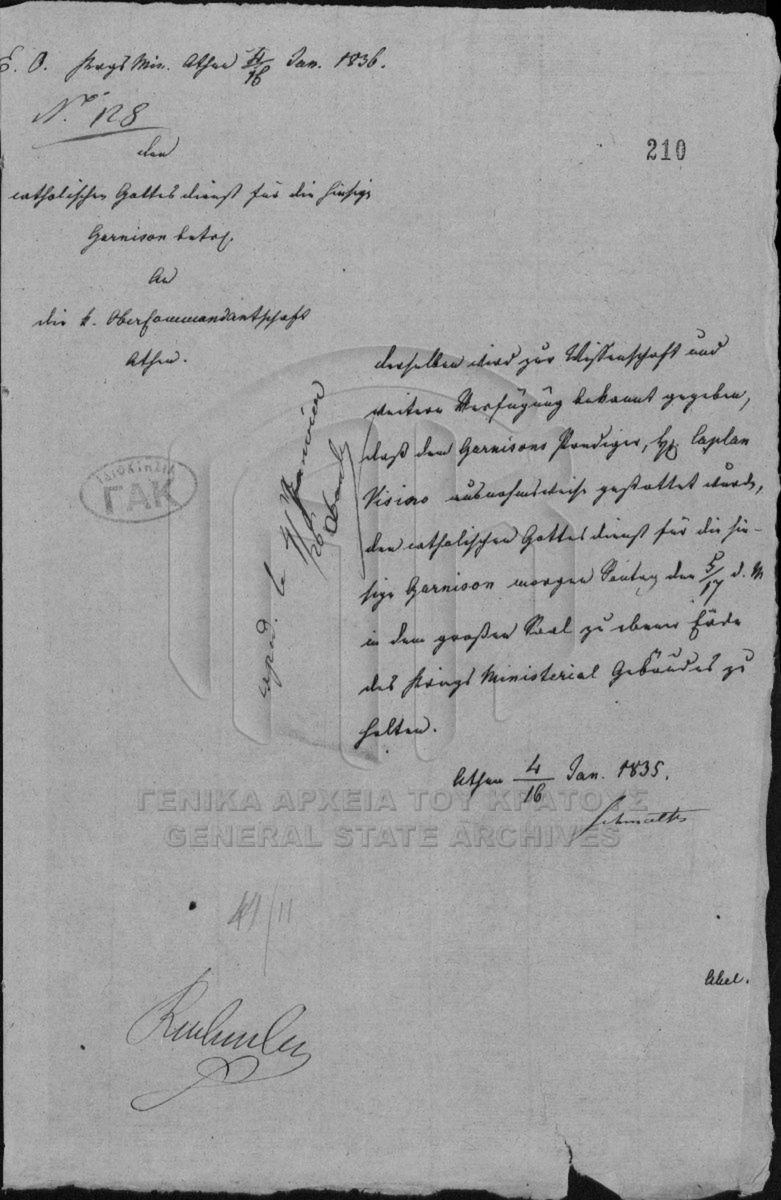 E. O. Kriegs Min. Athen 4/16 Jan. 1836.
No. 128
210
den
catholischen Gottesdienst für die hiesige
Garnison betrf.
An
die k. Obercommandantschaft
Athen.
derselben wird zur Wissenschaft und
weitern Verfügung bekannt gegeben,
daß dem Garnisons Prediger, H. Caplan
ausnahmsweise gestattet wurde,
den catholischen Gottesdienst für die hie-
sige Garnison morgen Sontag den 5/17 d. M
in dem großen Saal zu ebener Erde
des Kriegs Ministerial Gebäudes zu
halten.
Athen 4/16 Jan. 1835.
Schmaltz
exped. le 4/16 Janvier
ΙΔΙΟΚΤΗΣΙΑ
ΓΑΚ
ΓΕΝΙΚΑ ΑΡΧΕΙΑ ΤΟΥ ΚΡΑΤΟΥΣ
GENERAL STATE ARCHIVES
41/11
Abel.